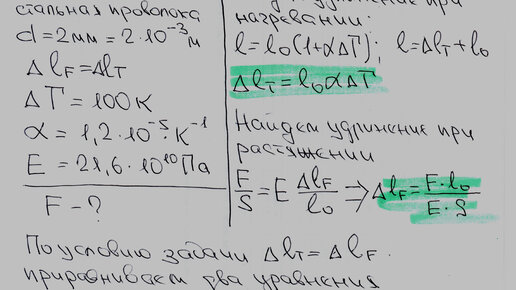 стальная проволока
d = 2мм = 2·10⁻³м
Δl_F = Δl_T
ΔT = 100К
α = 1,2·10⁻⁵·К⁻¹
E = 21,6·10¹⁰Па
F – ?
нагревании:
l = l₀(1+αΔT); l = Δl_T + l₀
Δl_T = l₀αΔT
Найдем удлинение при
растяжении
F/S = E Δl_F/l₀ ⇒ Δl_F = F·l₀/E·S
По условию задачи Δl_T = Δl_F.
приравниваем два уравнения